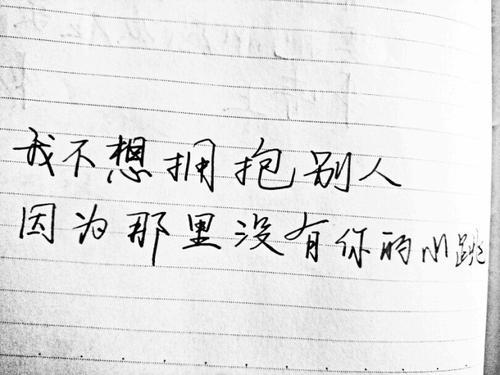 我不想拥抱别人
因为那里没有你的心跳